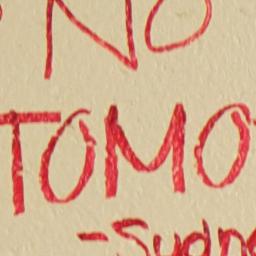 NO
TOMO
-Sydn